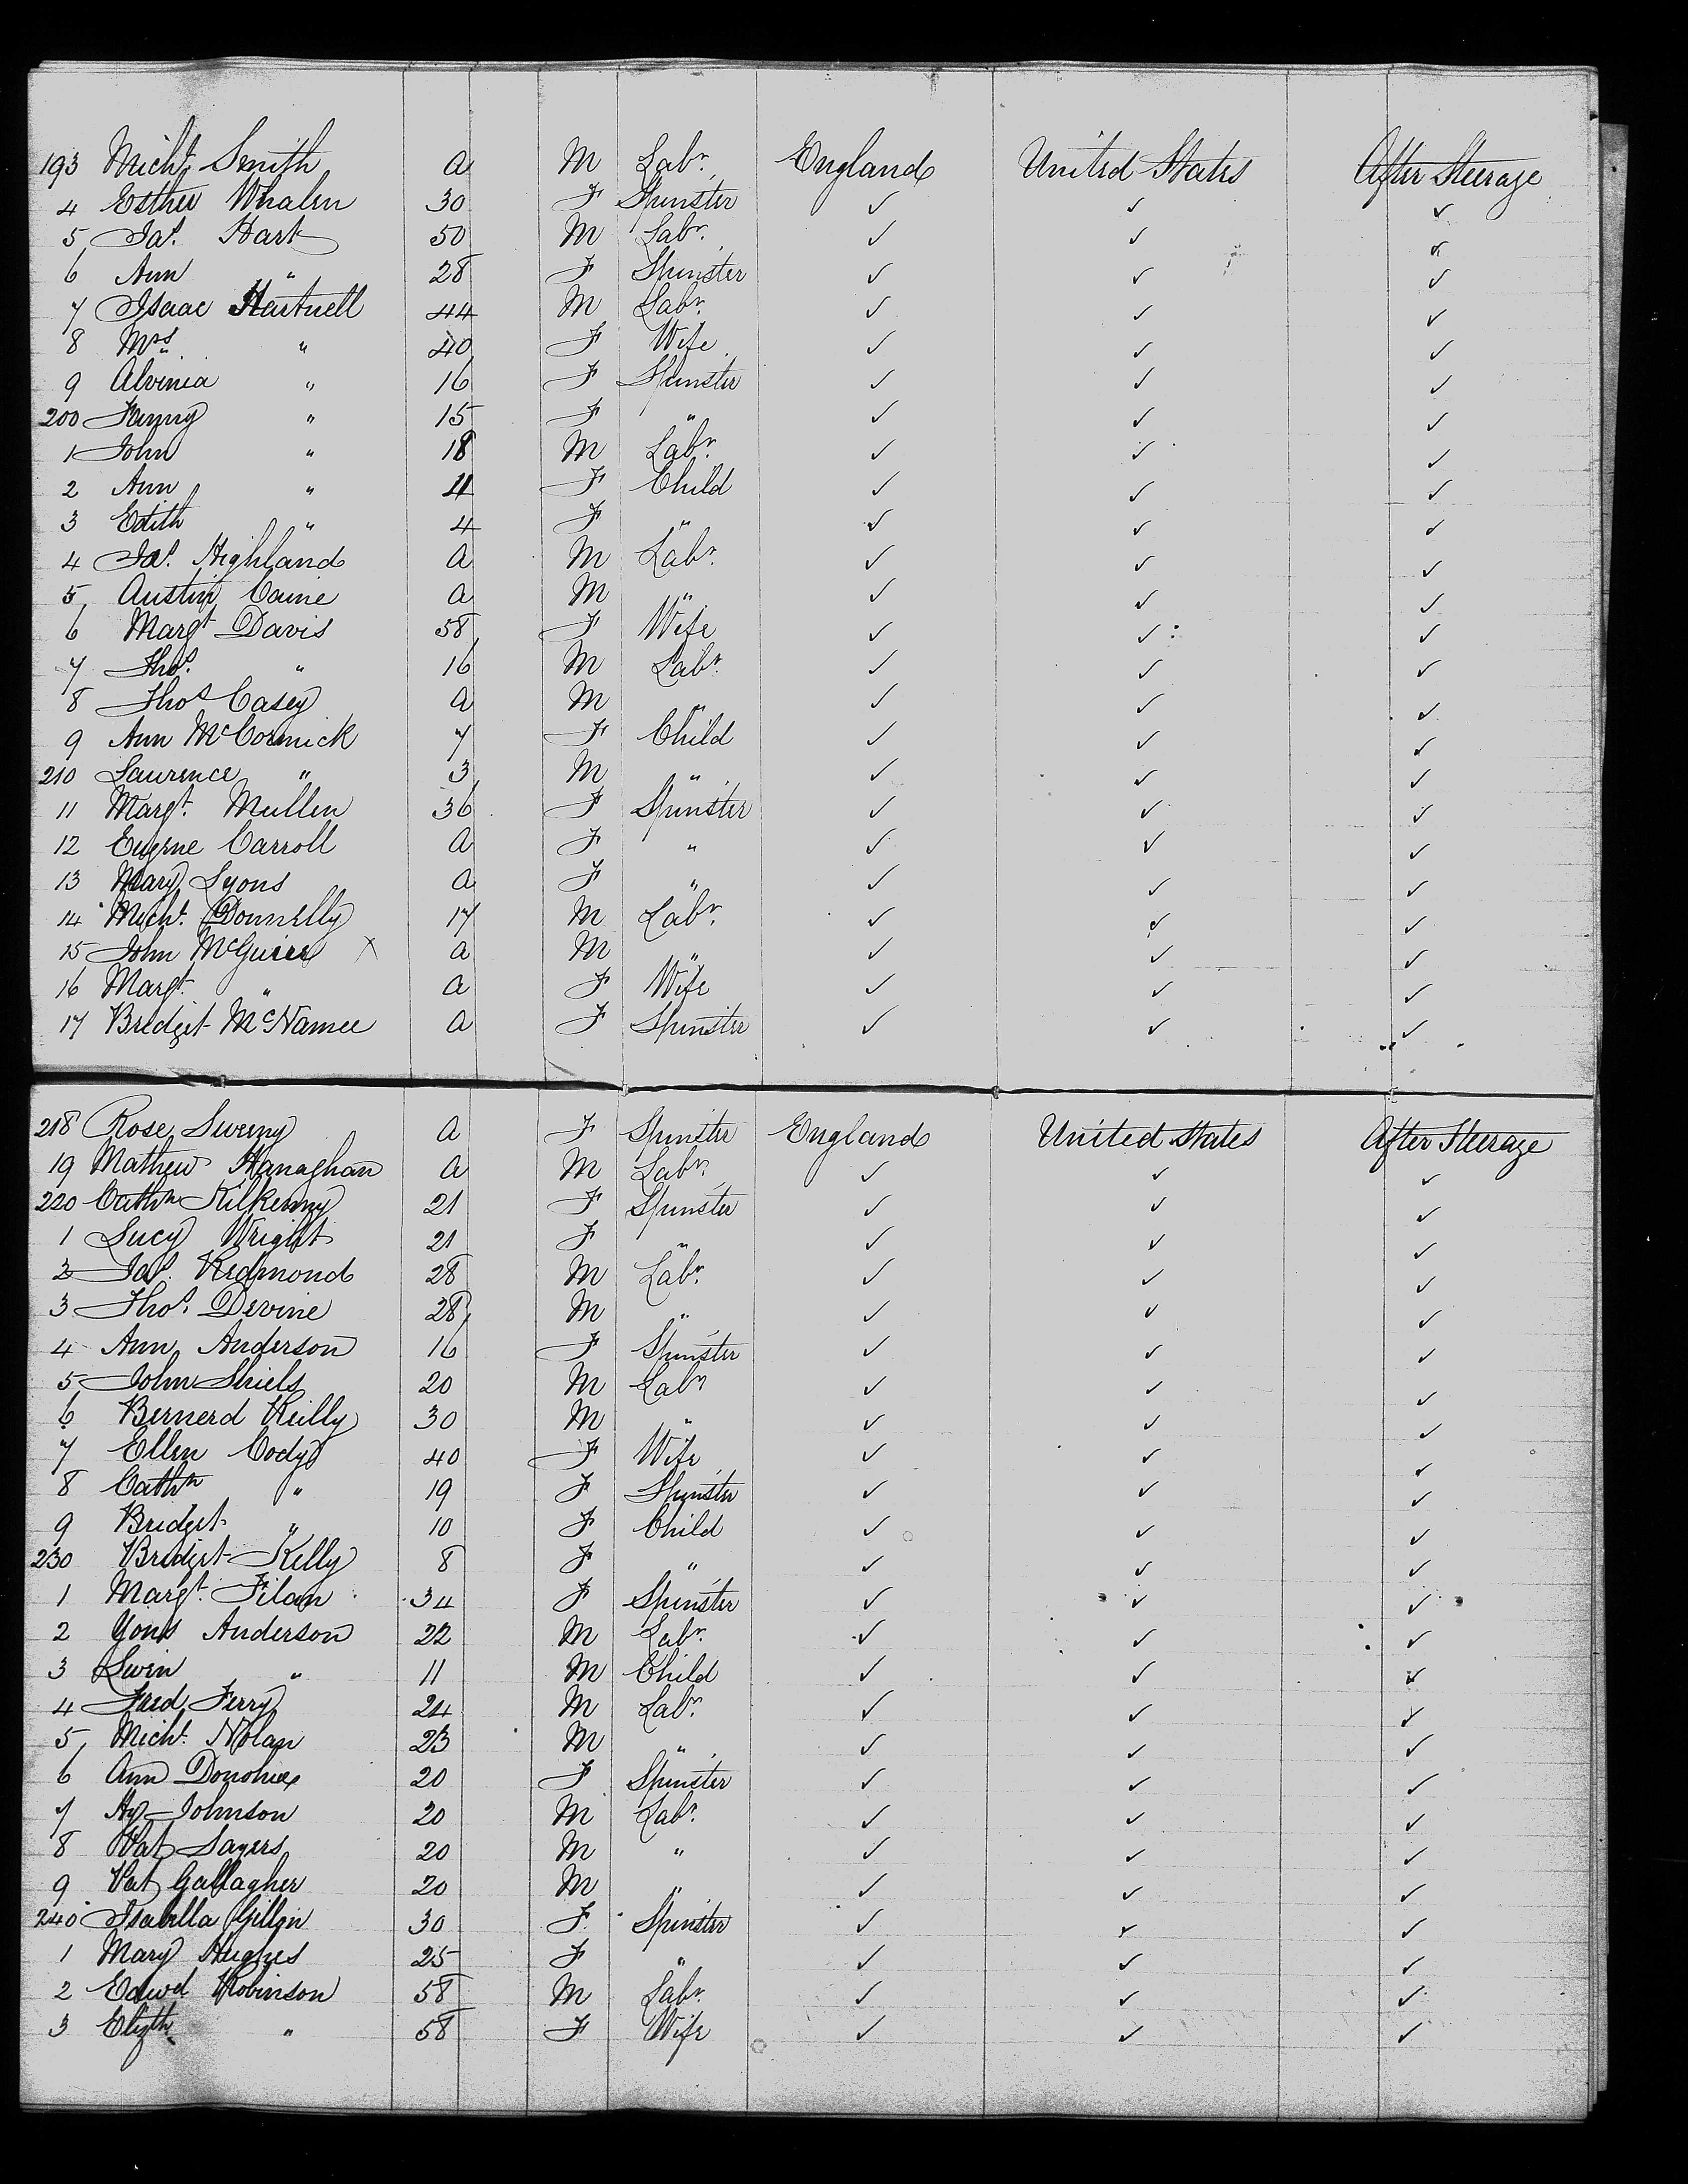 193 Micht. Smith a M Labr. England United States After Steerage
4 Esther Whalen 30 F Spinster ✓ ✓ ✓
5 Jas. Hart 50 M Labr. ✓ ✓ ✓
6 Ann " 28 F Spinster ✓ ✓ ✓
7 Isaac Hartnell 44 M Labr. ✓ ✓ ✓
8 Mrs " 40 F Wife ✓ ✓ ✓
9 Alvinia " 16 F Spinster ✓ ✓ ✓
200 Fanny " 15 F " ✓ ✓ ✓
1 John " 18 M Labr. ✓ ✓ ✓
2 Ann " 11 F Child ✓ ✓ ✓
3 Edith " 4 F " ✓ ✓ ✓
4 Jas. Highland a M Labr. ✓ ✓ ✓
5 Austin Caine a M " ✓ ✓ ✓
6 Margt Davis 58 F Wife ✓ ✓ ✓
7 Thos. " 16 M Labr. ✓ ✓ ✓
8 Thos Casey a M " ✓ ✓ ✓
9 Ann McCormick 7 F Child ✓ ✓ ✓
210 Laurence " 3 M " ✓ ✓ ✓
11 Margt. Mullen 36 F Spinster ✓ ✓ ✓
12 Eugene Carroll a F " ✓ ✓ ✓
13 Mary Lyons a F " ✓ ✓ ✓
14 Micht. Donnelly 17 M Labr. ✓ ✓ ✓
15 John McGuire X a M " ✓ ✓ ✓
16 Margt. " a F Wife ✓ ✓ ✓
17 Bridget McNamee a F Spinster ✓ ✓ ✓
218 Rose Sweeny a F Spinster England United States After Steerage
19 Mathew Hanaghan a M Labr. ✓ ✓ ✓
220 Cathn Kilkenny 21 F Spinster ✓ ✓ ✓
1 Lucy Wright 21 F " ✓ ✓ ✓
2 Jas. Redmond 28 M Labr. ✓ ✓ ✓
3 Thos. Devine 28 M " ✓ ✓ ✓
4 Ann Anderson 16 F Spinster ✓ ✓ ✓
5 John Shiels 20 M Labr ✓ ✓ ✓
6 Bernerd Reilly 30 M " ✓ ✓ ✓
7 Ellen Cody 40 F Wife ✓ ✓ ✓
8 Cathn " 19 F Spinster ✓ ✓ ✓
9 Bridget " 10 F Child ✓ ✓ ✓
230 Bridget Kelly 8 F " ✓ ✓ ✓
1 Margt. Filan 34 F Spinster ✓ ✓ ✓
2 Anderson 22 M Labr. ✓ ✓ ✓
3 Swen " 11 M Child ✓ ✓ ✓
4 Fred Ferry 24 M Labr. ✓ ✓ ✓
5 Micht. Nolan 23 M " ✓ ✓ ✓
6 Ann Donohue 20 F Spinster ✓ ✓ ✓
7 Hy Johnson 20 M Labr. ✓ ✓ ✓
8 Pat Sayers 20 M " ✓ ✓ ✓
9 Pat Gallagher 20 M " ✓ ✓ ✓
240 Isabella Gillgin 30 F Spinster ✓ ✓ ✓
1 Mary Hughes 25 F " ✓ ✓ ✓
2 Edwd Robinson 58 M Labr. ✓ ✓ ✓
3 Elizth " 58 F Wife ✓ ✓ ✓